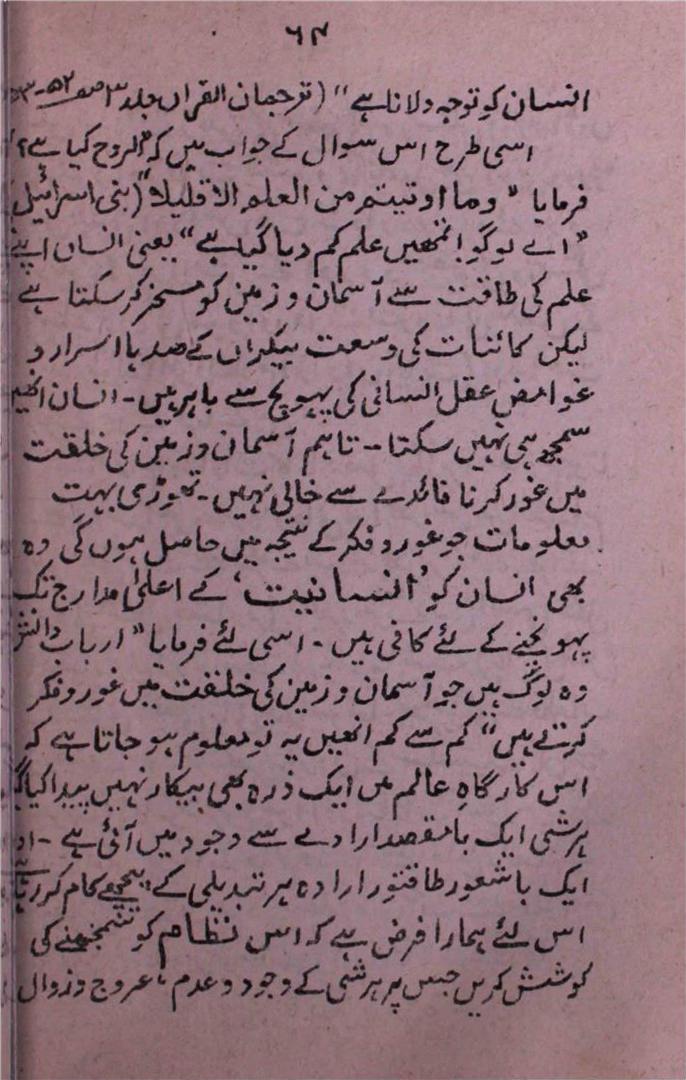 ۶۴
انسان کو توجہ دلاتا ہے" (ترجمان القرآن جلد ۳ صفحہ ۵۲-۵۳
اسی طرح اس سوال کے جواب میں کہ "الروح کیا ہے؟"
فرمایا "وما اوتیتم من العلم الا قلیلا" (بنی اسرائیل)
"اے لوگو! تمھیں علم کم دیا گیا ہے" یعنی انسان اپنے
علم کی طاقت سے آسمان و زمین کو مسخر کر سکتا ہے
لیکن کائنات کی وسعت بیکراں کے صدہا اسرار و
غوامض عقل انسانی کی پہونچ سے باہر ہیں۔ انسان انھیں
سمجھ ہی نہیں سکتا۔ تاہم آسمان و زمین کی خلقت
میں غور کرنا فائدے سے خالی نہیں۔ تھوڑی بہت
معلومات جو غور و فکر کے نتیجہ میں حاصل ہوں گی وہ
بھی انسان کو 'انسانیت' کے اعلیٰ مدارج تک
پہونچنے کے لئے کافی ہیں۔ اسی لئے فرمایا "ارباب دانش
وہ لوگ ہیں جو آسمان و زمین کی خلقت میں غور و فکر
کرتے ہیں" کم سے کم انھیں یہ تو معلوم ہو جاتا ہے کہ
اس کارگاہِ عالم میں ایک ذرہ بھی بیکار نہیں پیدا کیا گیا
ہر شئی ایک بامقصد ارادے سے وجود میں آئی ہے۔ اور
ایک باشعور طاقتور ارادہ ہر تبدیلی کے پیچھے کام کر رہا ہے
اس لئے ہمارا فرض ہے کہ اس نظام کو سمجھنے کی
کوشش کریں جس پر ہر شئی کے وجود و عدم، عروج و زوال